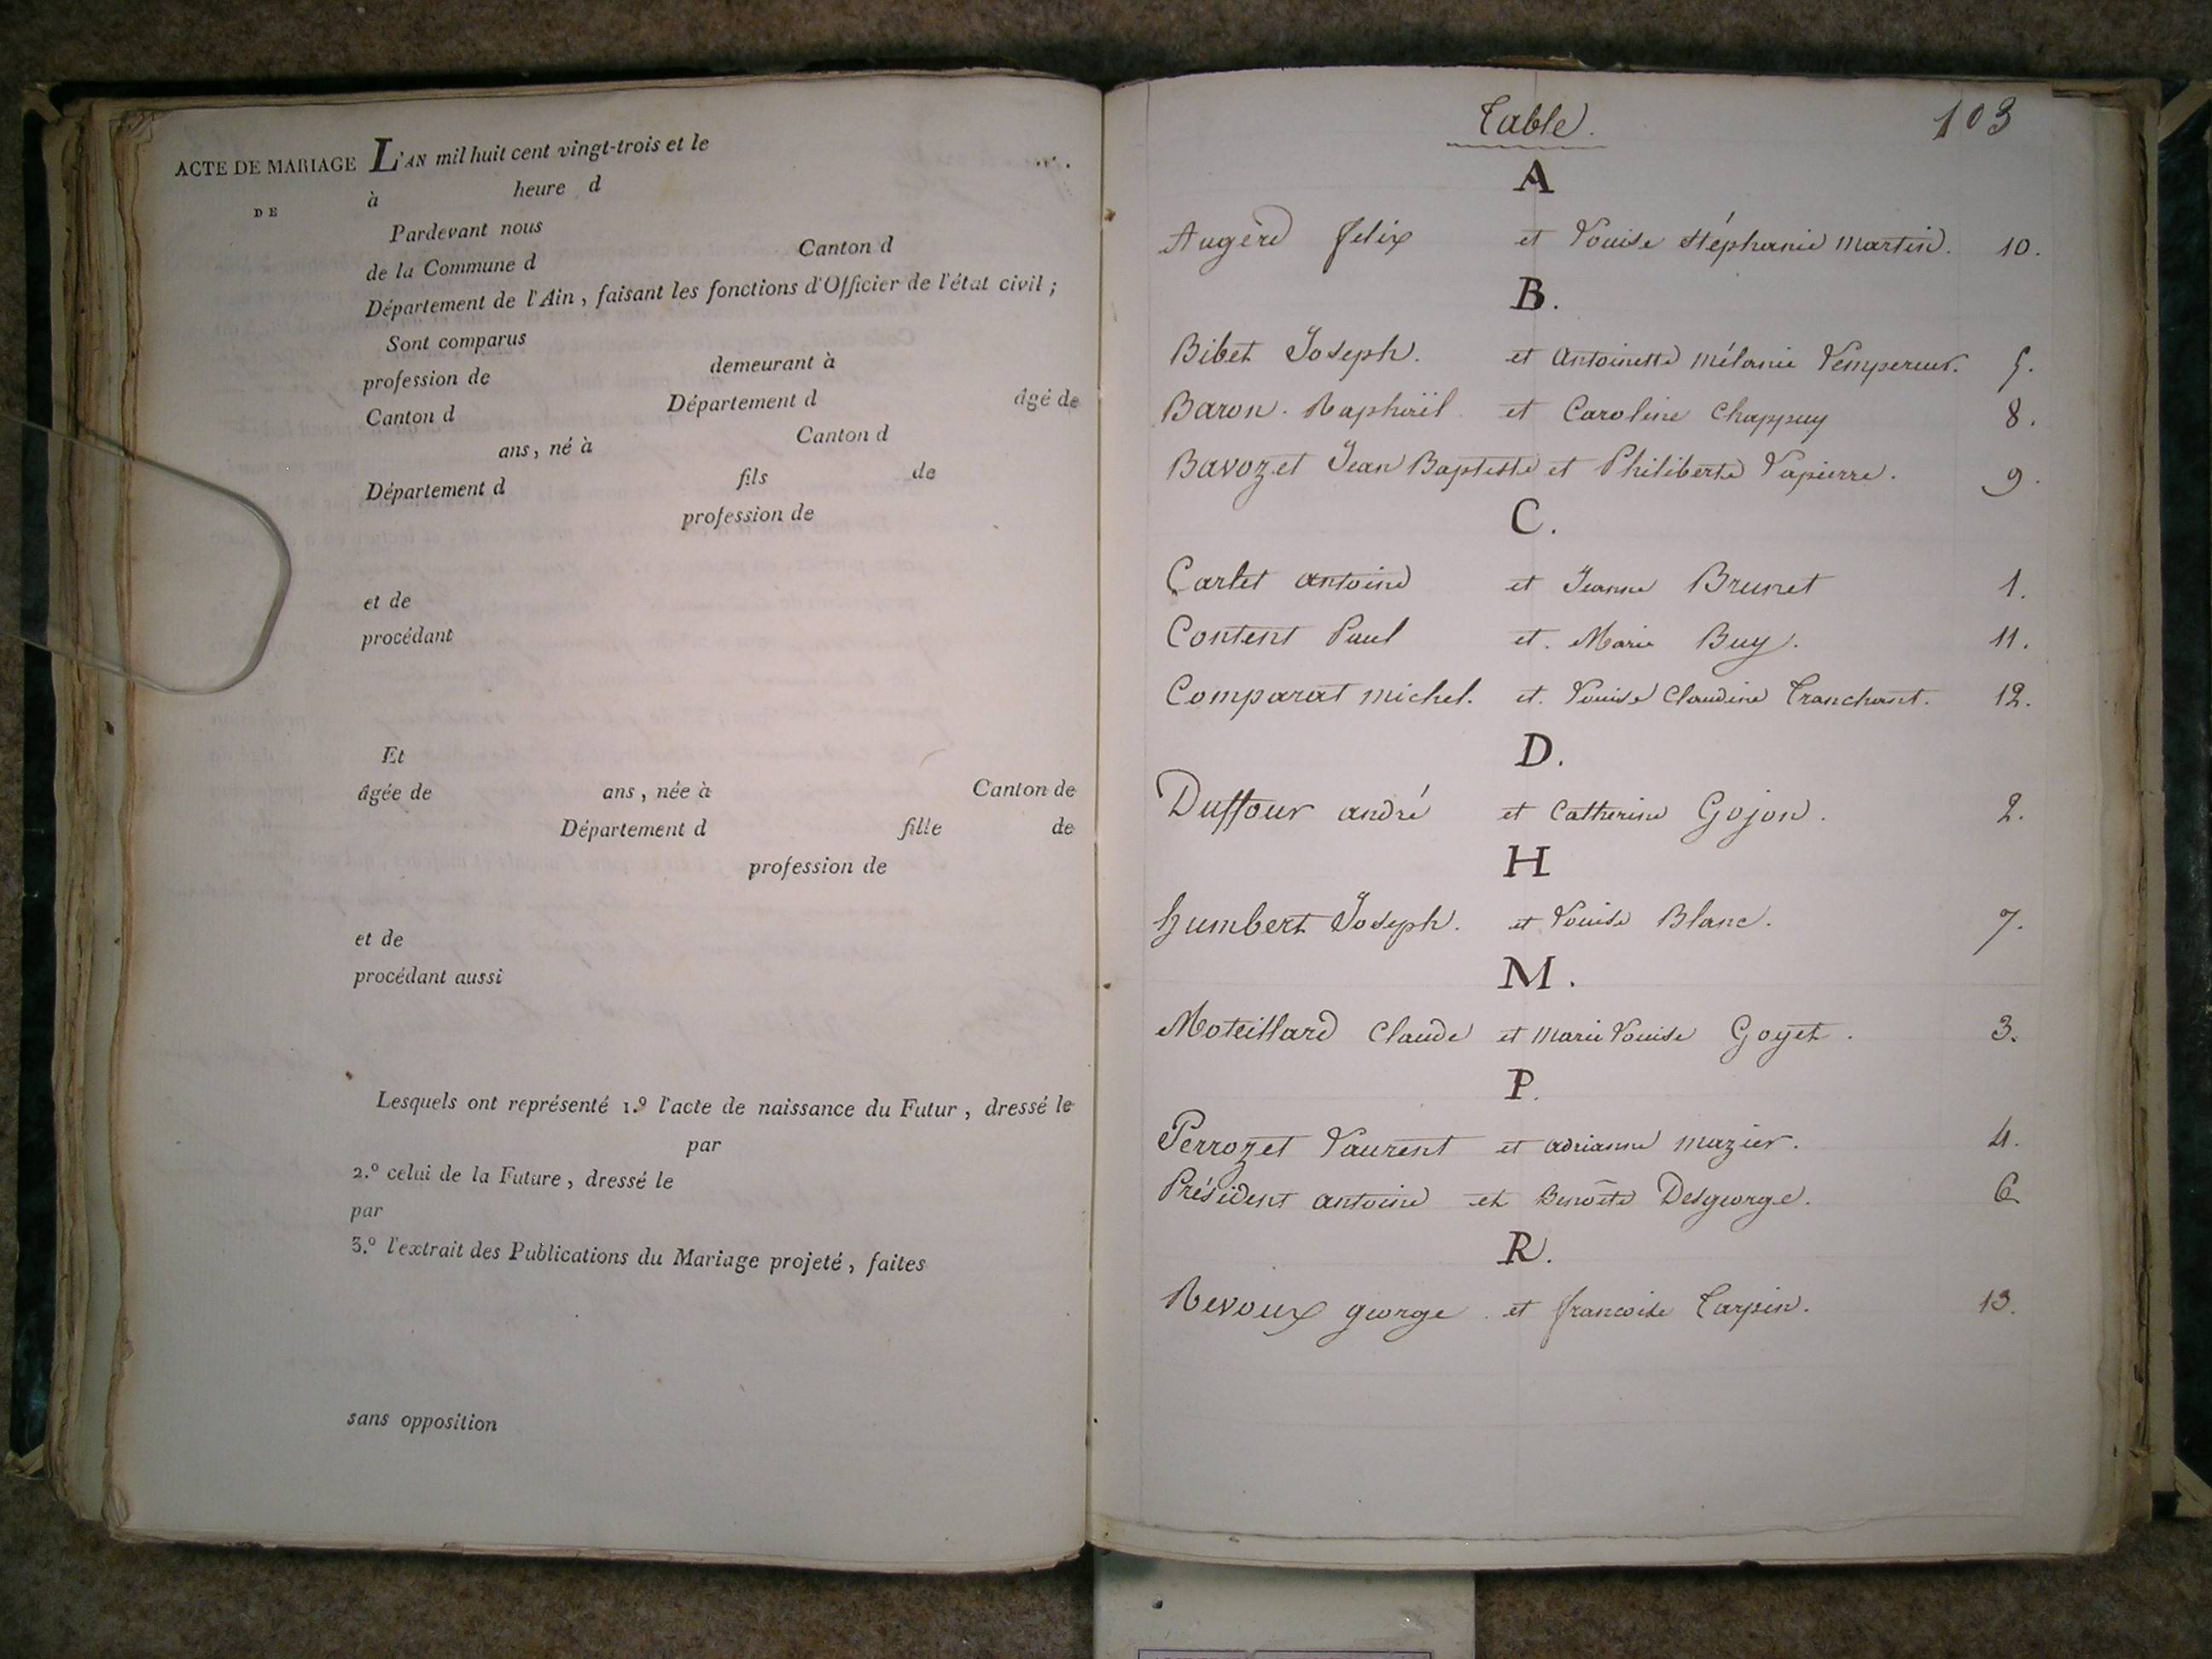 ACTE DE MARIAGE
DE
L'AN mil huit cent vingt-trois et le
à heure d
Pardevant nous
de la Commune d Canton d
Département de l'Ain, faisant les fonctions d'Officier de l'état civil ;
Sont comparus
profession de demeurant à
Canton d Département d âgé de
ans, né à Canton d
Département d fils de
profession de
et de
procédant
Et
âgée de ans, née à Canton de
Département d fille de
profession de
et de
procédant aussi
Lesquels ont représenté 1.º l'acte de naissance du Futur, dressé le
par
2.º celui de la Future, dressé le
par
3.º l'extrait des Publications du Mariage projeté, faites
sans opposition
Table. 103
A
Augerd felix et Louise Stéphanie Martin. 10.
B.
Bibet Joseph. et Antoinette Mélanie Lempereur. 5.
Baron. Raphaël et Caroline Chappuy 8.
Bavozet Jean Baptiste et Philiberte Lapierre. 9.
C.
Carlet antoine et Jeanne Brunet 1.
Content Paul et. Marie Buy. 11.
Comparat michel. et. Louise Claudine Tranchant. 12.
D.
Duffour andré et Catherine Gojon. 2.
H
Humbert Joseph. et Louise Blanc. 7.
M.
Moteillard Claude et Marie Louise Goyet. 3.
P.
Perrozet Laurent et adrianne Mazier. 4.
Président antoine et Benoîte Desgeorge. 6
R.
Revoux george. et francoise Carpin. 13.